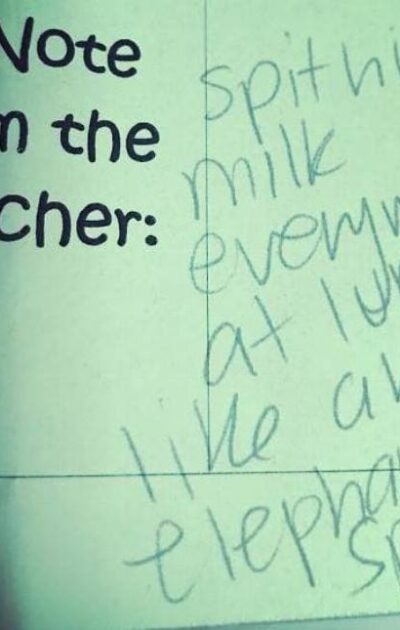 Note
m the
cher:
spithi
milk
every
at lun
like a
elepha
sp